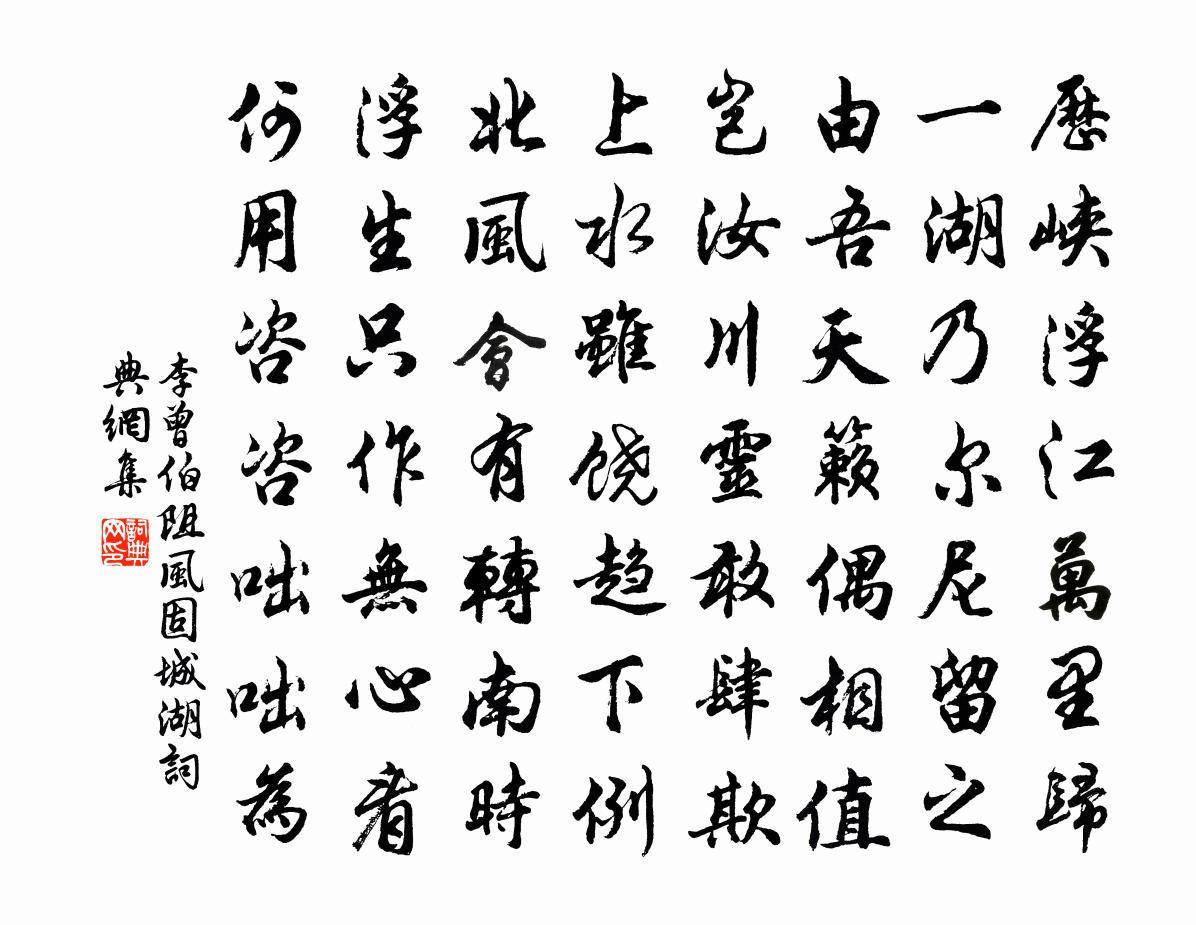 歷峽浮江萬里歸
一湖乃尔尼留之
由吾天籟偶相值
豈汝川靈敢肆欺
上水雖饒趋下例
北風會有轉南時
浮生只作無心看
何用咨咨咄咄為
李曾伯阻風固城湖詞
典網集
詞典
网印